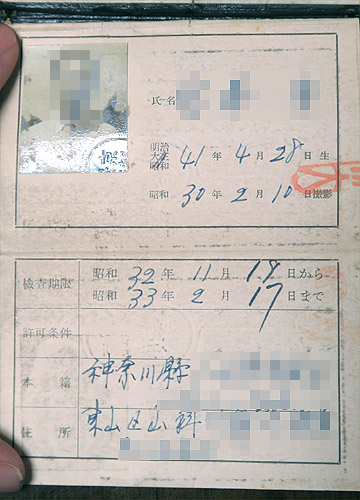 氏名
明治
大正
昭和 41年4月28日生
昭和 30年2月10日撮影
検査期限 昭和 32年11月19日から
昭和 33年2月17日まで
許可条件
本籍 神奈川縣
住所 東山区山科